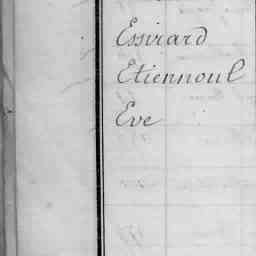 Essirard
Etiennoul
Eve